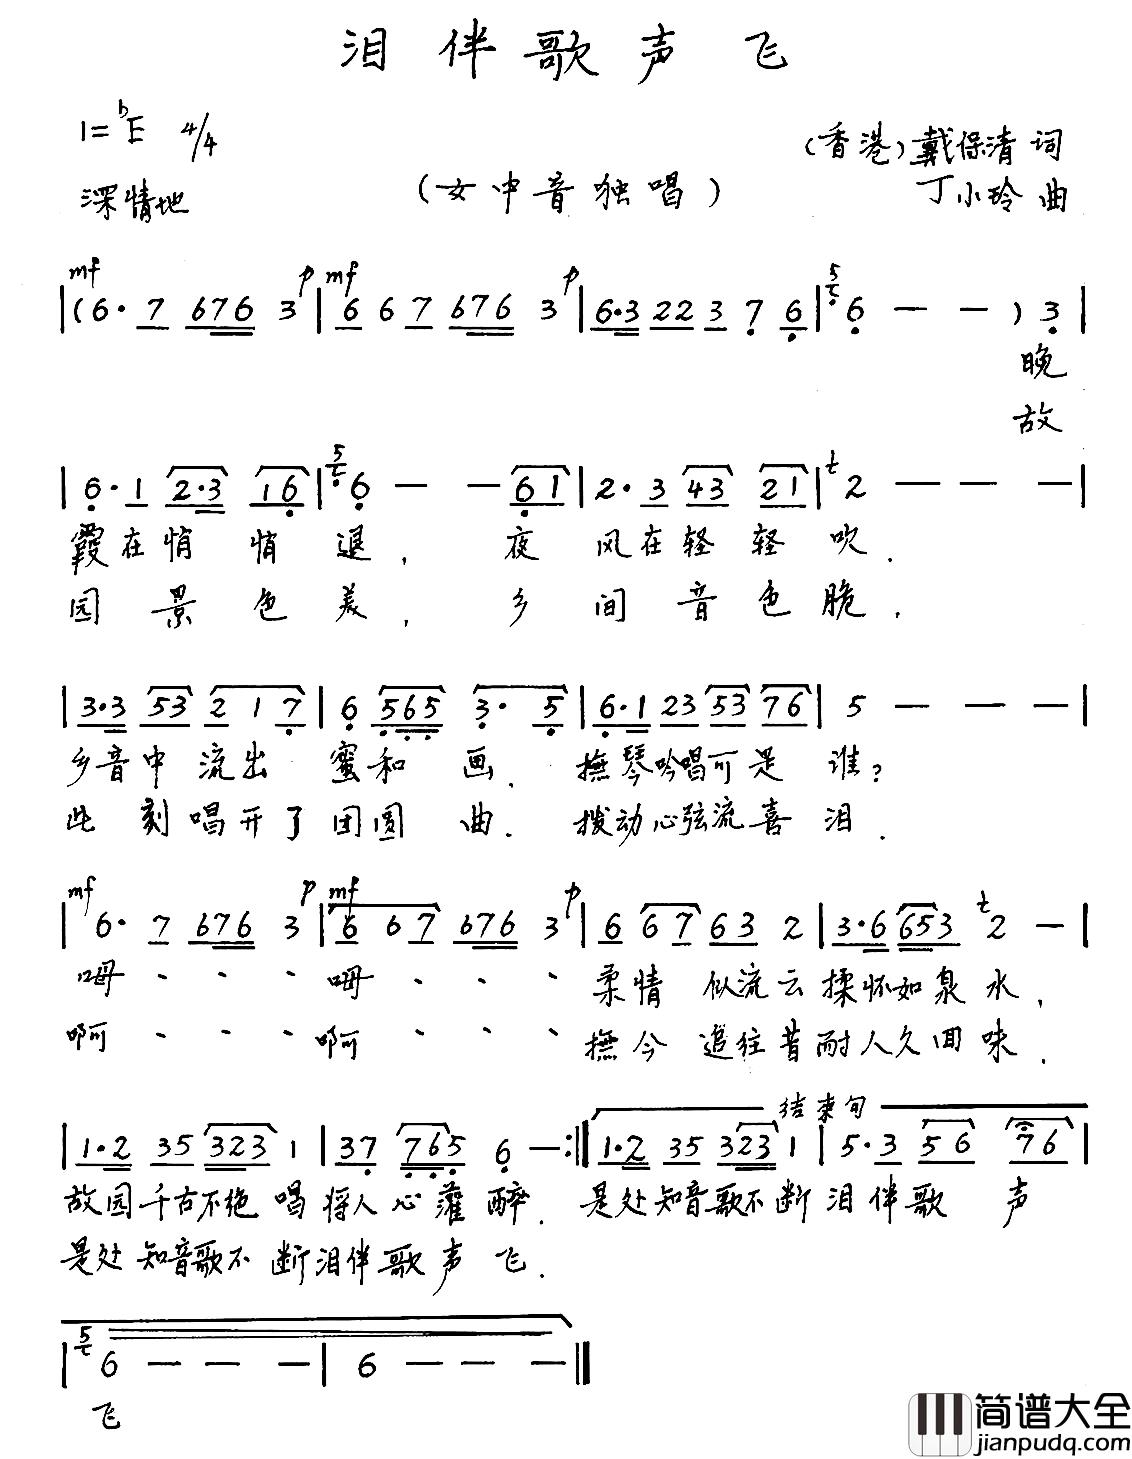 泪伴歌声飞
1=♭E 4/4
(香港)戴保清 词
深情地
(女中音独唱)
丁小玲 曲
mf p mf p
|(6· 7 676 3|6 6 7 676 3|6·3 223 7 6|5 6 — — ) 3|
晚
故
|6·1 2·3 16|5 6 — — 61|2·3 43 21|2 — — —|
霞在悄悄退,夜风在轻轻吹.
园景色美,乡间音色脆.
|3·3 53 2 1 7|6 565 3· 5|6·1 23 53 76|5 — — —|
乡音中流出蜜和画.抚琴吟唱可是谁?
此刻唱开了团圆曲.拨动心弦流喜泪.
mf p mf p
|6· 7 676 3|6 6 7 676 3|6 67 63 2|3·6 653 2 —|
呣、、、呣、、、柔情似流云揉怀如泉水,
啊、、、啊、、、抚今追往昔耐人久回味.
结束句
|1·2 35 323 1|37 765 6 —:||1·2 35 323 1|5·3 56 76|
故园千古不绝唱将人心灌醉.是处知音歌不断泪伴歌声
是处知音歌不断泪伴歌声飞.
|5 6 — — —|6 — — —||
飞
简谱大全
jianpudq.com